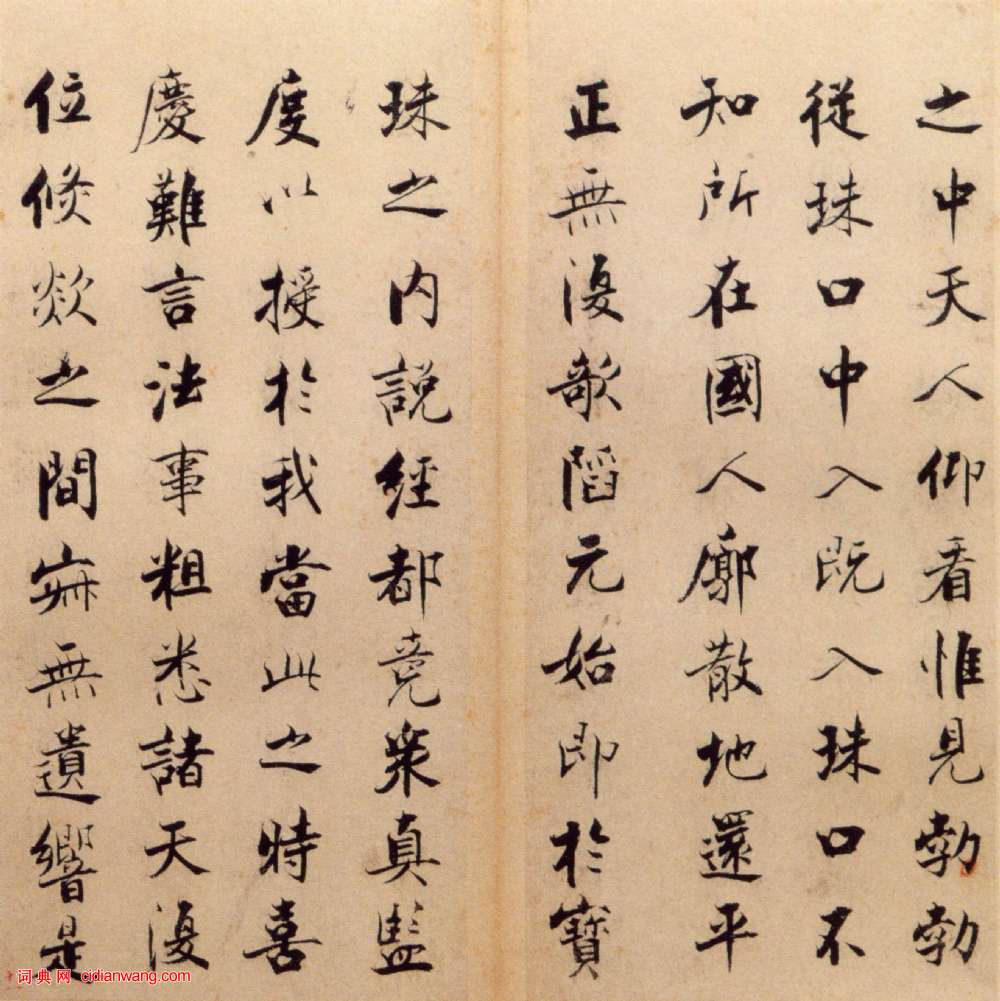 之中天人仰看惟見勃勃
従珠口中入既入珠口不
知所在國人廓散地還平
正無復欹陷元始即於寶
珠之内説經都竟衆真監
度以授於我當此之時喜
慶難言法事粗悉諸天復
位倐歘之間寂無遺響是
词典网 cidianwang.com